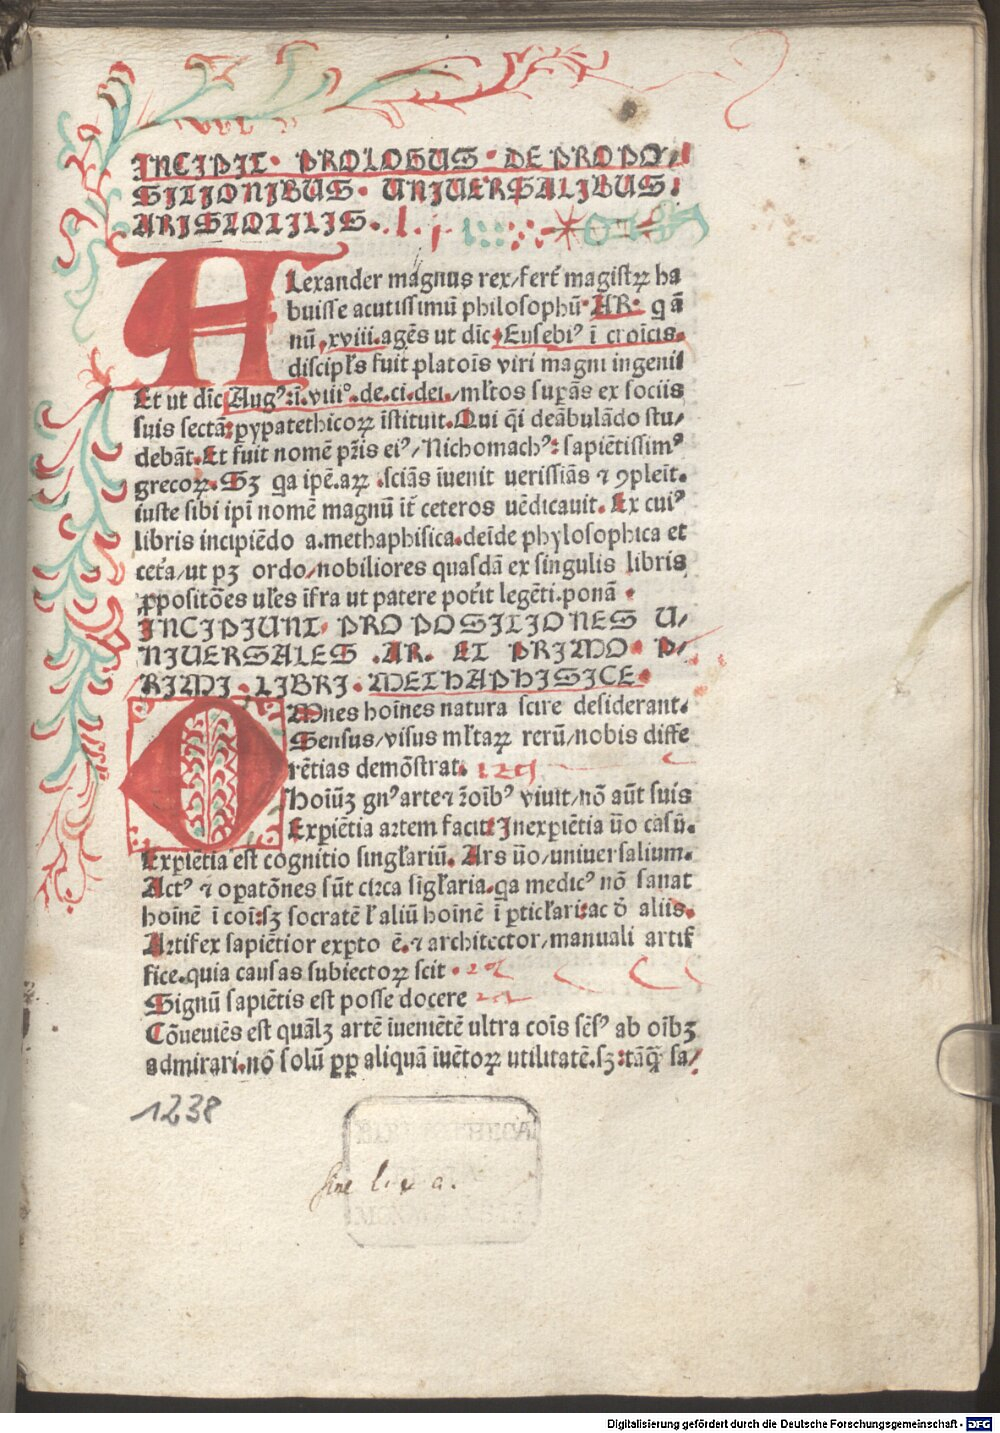 INCIPIT · PROLOGUS · DE PROPO/
SITIONIBUS · UNIVERSALIBUS.
ARISTOTILIS.
Alexander magnus rex/fert᷑ magistrꝝ ha
buisse acutissimū philosophū·AR· q ā
nū .xviii.agēs ut dic̄ Eusebiꝰ ī croīcis.
discipl̄s fuit platoīs viri magni ingenii
Et ut dic̄ Augꝰ:ī.viiiº.de.ci.dei./ml̄tos sup̄as ex sociis
suis sectā:pypatethicoꝝ īstituit.Qui q̄i deābulādo stu/
debāt.Et fuit nomē pr̄is eiꝰ/Nichomachꝰ:sapiētissimꝰ
grecoꝝ.Sꝫ qa ipē.aꝝ .sciās īuenit uerissiās ⁊ ꝯpleīt.
iuste sibi ipī nomē magnū it̄ ceteros uēdicauit.Ex cuiꝰ
libris incipiēdo a.methaphisica.deīde phylosophica et
cet᷑a/ut pꝫ ordo/nobiliores quasdā ex singulis libris
ꝓpositōes ul̄es īfra ut patere pot᷑it legēti.ponā .
INCIPIUNT· PROPOSITIONES U/
NIVERSALES .AR. ET PRIMO· P/
RIMI · LIBRI · METHAPHISICE·
OMnes hoīnes natura scire desiderant.
Sensus/visus ml̄taꝝ rerū/nobis diffe
rētias demōstrat.
Hoīuꝫ gnꝰ arte⁊ r̄oībꝰ viuit/nō aūt suis
Expiētia artem facit:Inexpiētia ūo casū.
Expiētia est cognitio singl̄ariū. Ars ūo/uniuersalium.
Actꝰ ⁊ opatōnes sūt circa sigl̄aria.qa medicꝰ nō sanat
hoīnē ī coī:sꝫ socratē l̄ aliū hoīnē ī ꝑticl̄ari:ac ō aliis.
Artifex sapiētior expto ē.⁊ architector/manuali artif
fice.quia causas subiectoꝝ scit .
Signū sapiētis est posse docere
Cōueuiēs est quālꝫ artē iueniētē ultra coīs sēsꝰ ab oībꝫ
admirari.nō solū ꝓp aliquā iuētoꝝ utilitatē.sꝫ:tāꝗ̄ sa/
1238
sine l. e a.
Digitalisierung gefördert durch die Deutsche Forschungsgemeinschaft - DFG